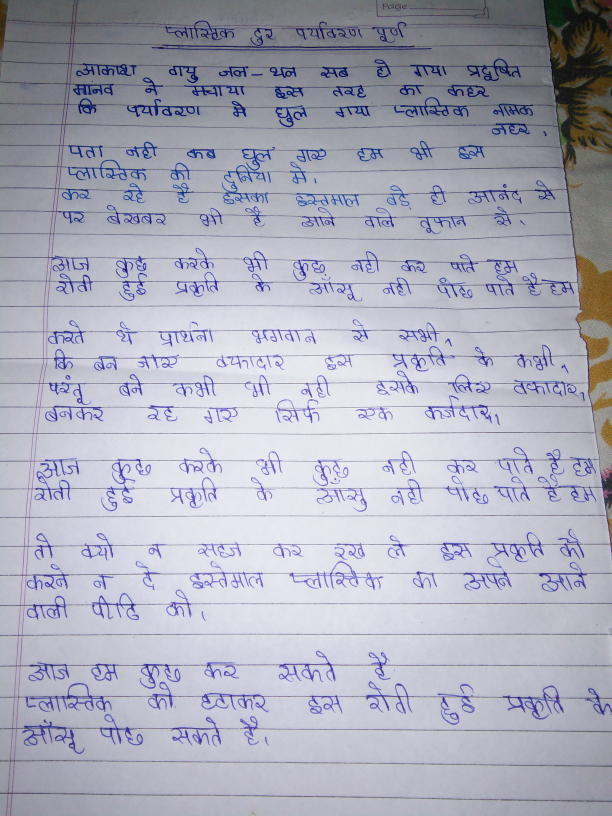 Page
प्लास्टिक दुर पर्यावरण पूर्ण
आकाश वायु जन-धन सब हो गया प्रदूषित
मानव ने मचाया इस तरह का कहर
कि पर्यावरण मे घुल गया प्लास्टिक नामक
जहर,
पता नही कब घुल गए हम भी इस
प्लास्टिक की दुनिया मे,
कर रहे है इसका इस्तमाल बड़े ही आनंद से
पर बेखबर भी है आने वाले तूफान से,
आज कुछ करके भी कुछ नही कर पाते हम
रोती हुई प्रकृति के आँसू नही पोछ पाते है हम
करते थे प्रार्थना भगवान से सभी,
कि बन जाए वफादार इस प्रकृति के कभी,
परंतू बने कभी भी नही इसके लिए वफादार,
बनकर रह गए सिर्फ एक कर्जदार,
आज कुछ करके भी कुछ नही कर पाते है हम
रोती हुई प्रकृति के आँसु नही पोछ पाते है हम
तो क्यो न सहज कर रख ले इस प्रकृति को
करने न दे इस्तेमाल प्लास्तिक का अपने आने
वाली पीढि को,
आज हम कुछ कर सकते है
प्लास्तिक को हटाकर इस रोती हुई प्रकृति के
आँसू पोछ सकते है,